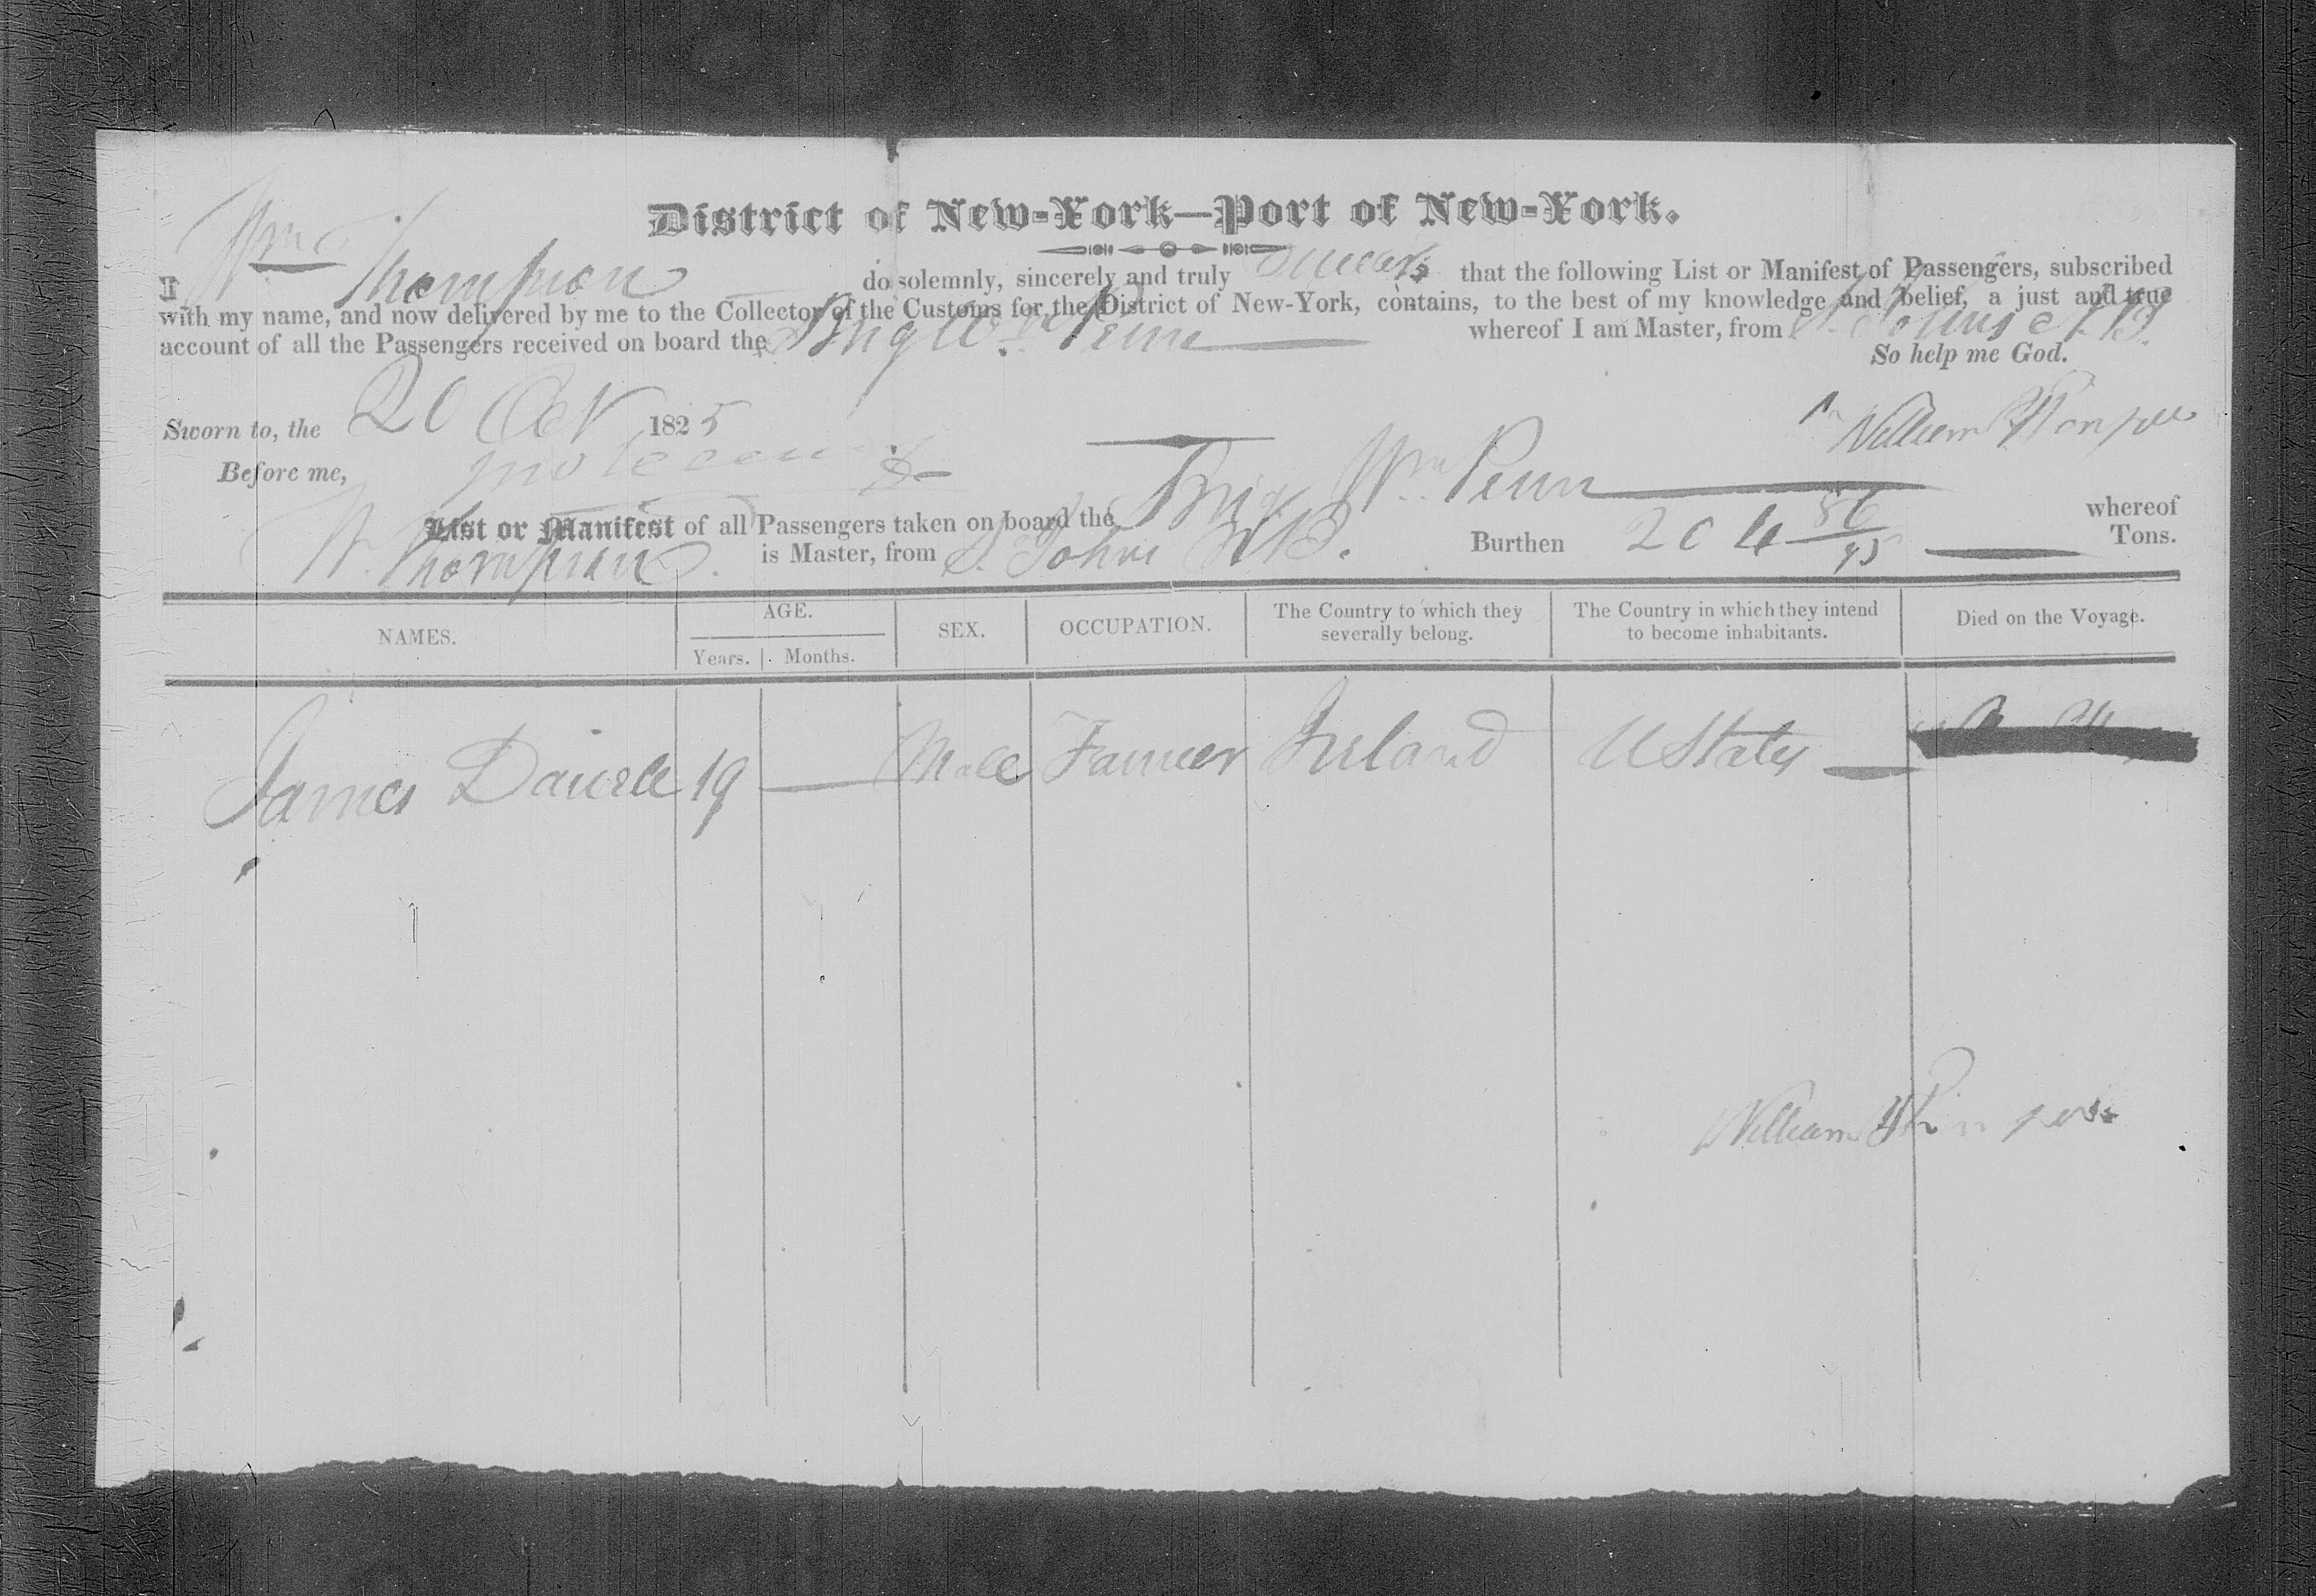 District of New-York—Port of New-York.
I Wm Thompson do solemnly, sincerely and truly swear that the following List or Manifest of Passengers, subscribed
with my name, and now delivered by me to the Collector of the Customs for the District of New-York, contains, to the best of my knowledge and belief, a just and true
account of all the Passengers received on board the Brig Wm Penn whereof I am Master, from St Johns N B.
So help me God.
Sworn to, the 20 Oct 1825
William Thompson
Before me,
List or Manifest of all Passengers taken on board the Brig Wm Penn whereof
W. Thompson is Master, from St Johns N B. Burthen 204 86/95 Tons.
NAMES. AGE. SEX. OCCUPATION. The Country to which they severally belong. The Country in which they intend to become inhabitants. Died on the Voyage.
Years. Months.
James 19 — Male Farmer Ireland U States
William Thompson